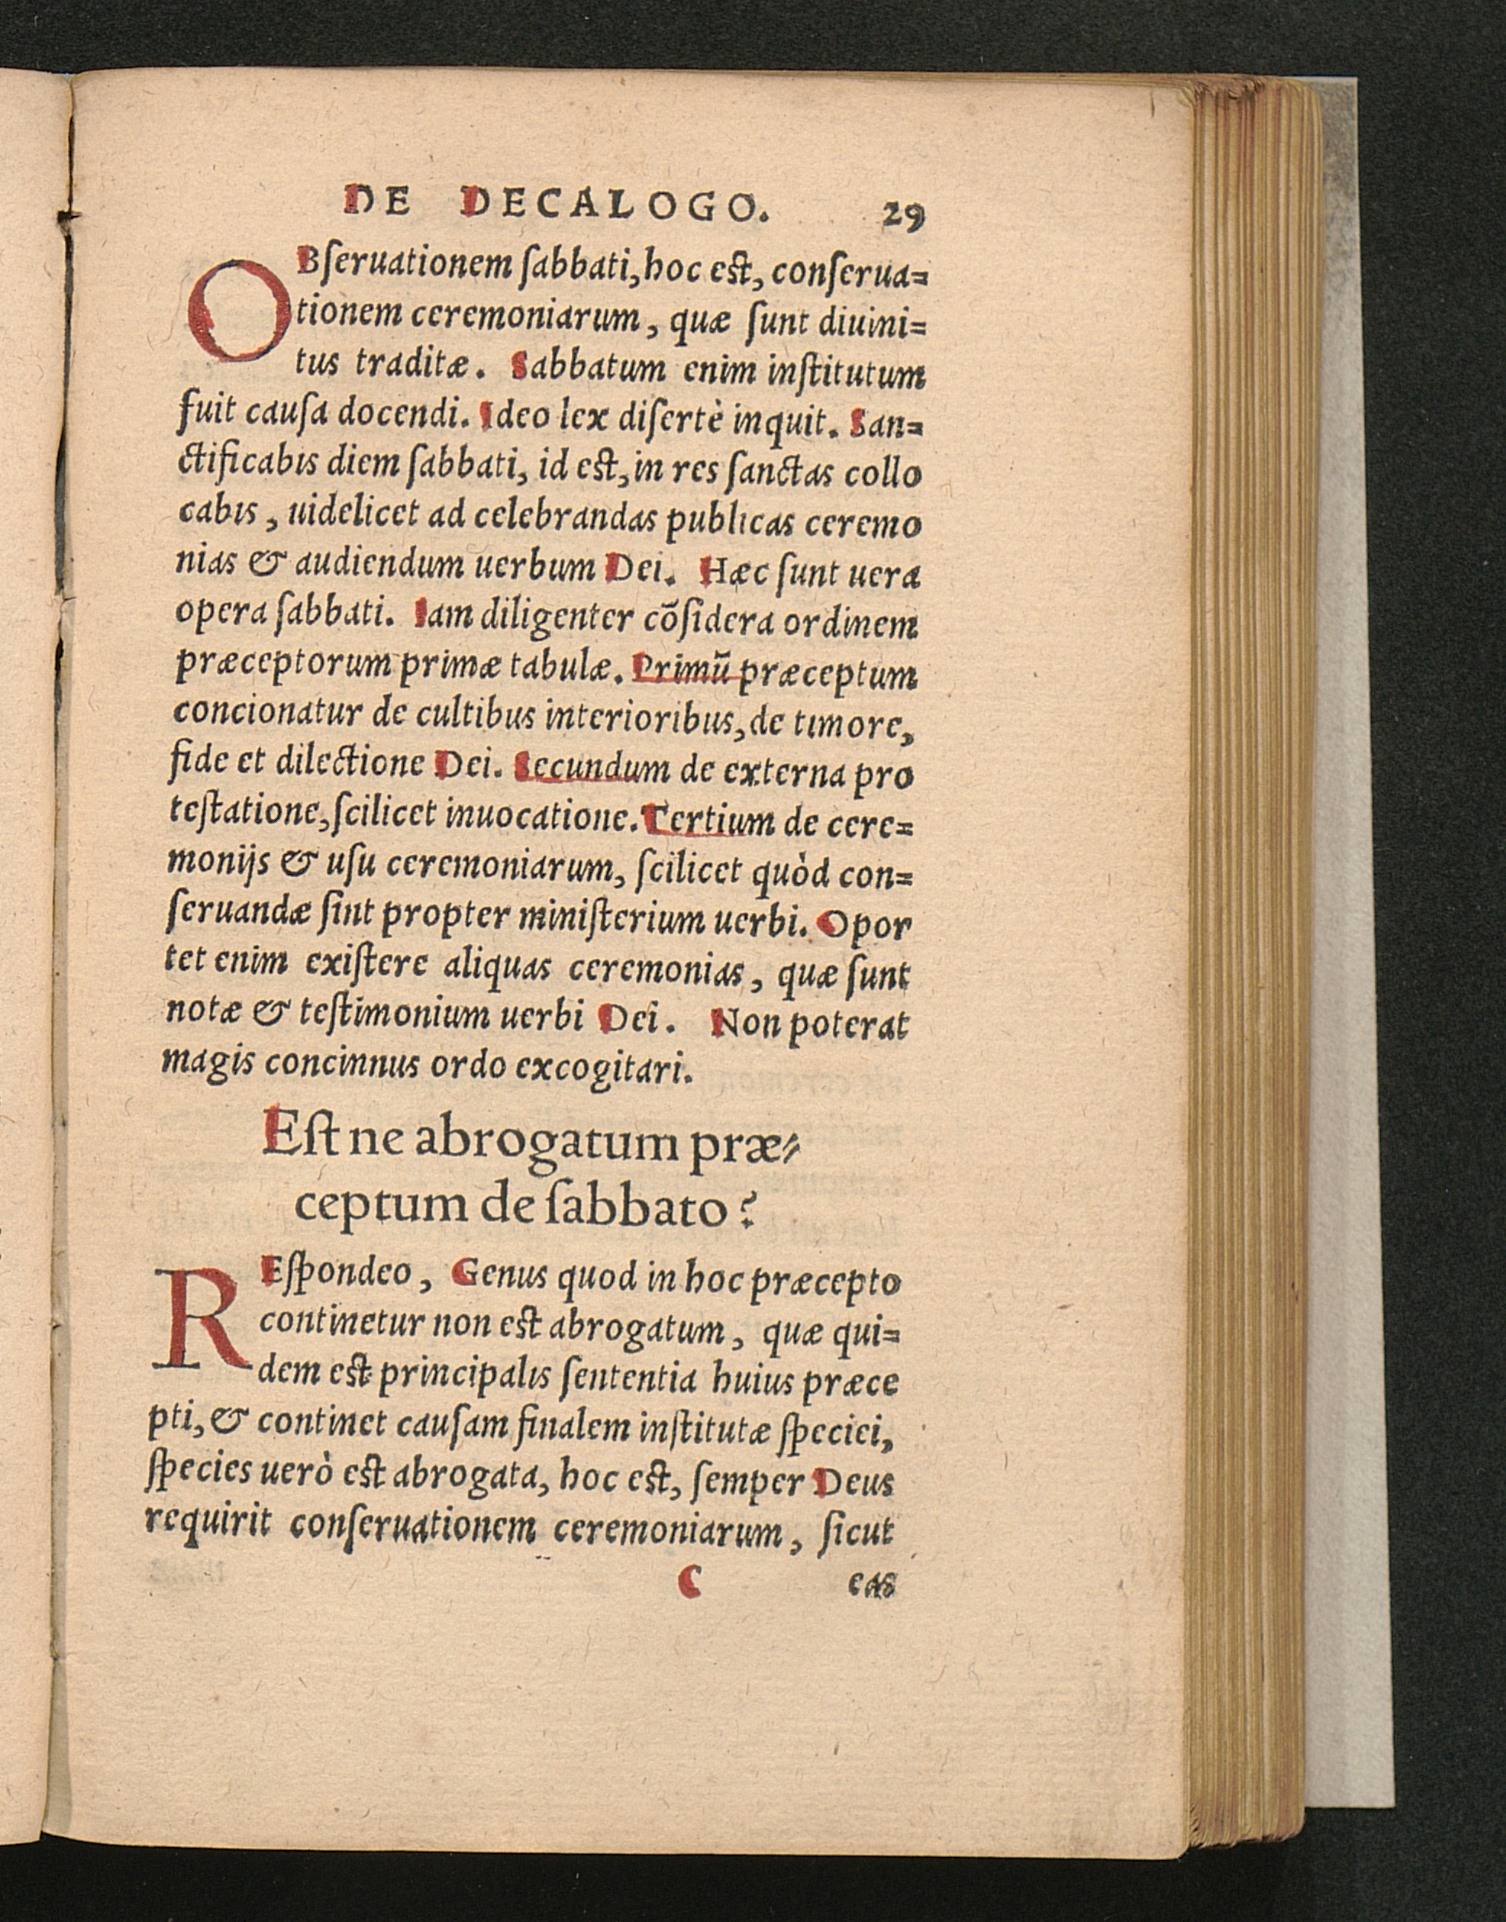 DE DECALOGO. 29
OBſeruationem ſabbati, hoc eſt, conſerua=
tionem ceremoniarum, quæ ſunt diuini=
tus traditæ. Sabbatum enim inſtitutum
fuit cauſa docendi. Ideo lex diſertè inquit. San=
ctificabis diem ſabbati, id eſt, in res ſanctas collo
cabis, uidelicet ad celebrandas publicas ceremo
nias & audiendum uerbum Dei. Hæc ſunt uera
opera ſabbati. Iam diligenter cõſidera ordinem
præceptorum primæ tabulæ. Primũ præceptum
concionatur de cultibus interioribus, de timore,
fide et dilectione Dei. Secundum de externa pro
teſtatione, ſcilicet inuocatione. Tertium de cere=
monijs & uſu ceremoniarum, ſcilicet quòd con=
ſeruandæ ſint propter miniſterium uerbi. Opor
tet enim exiſtere aliquas ceremonias, quæ ſunt
notæ & teſtimonium uerbi Dei. Non poterat
magis concinnus ordo excogitari.
Eſt ne abrogatum præ=
ceptum de ſabbato?
REſpondeo, Genus quod in hoc præcepto
continetur non eſt abrogatum, quæ qui=
dem eſt principalis ſententia huius præce
pti, & continet cauſam finalem inſtitutæ ſpeciei,
ſpecies uerò eſt abrogata, hoc eſt, ſemper Deus
requirit conſeruationem ceremoniarum, ſicut
C eas